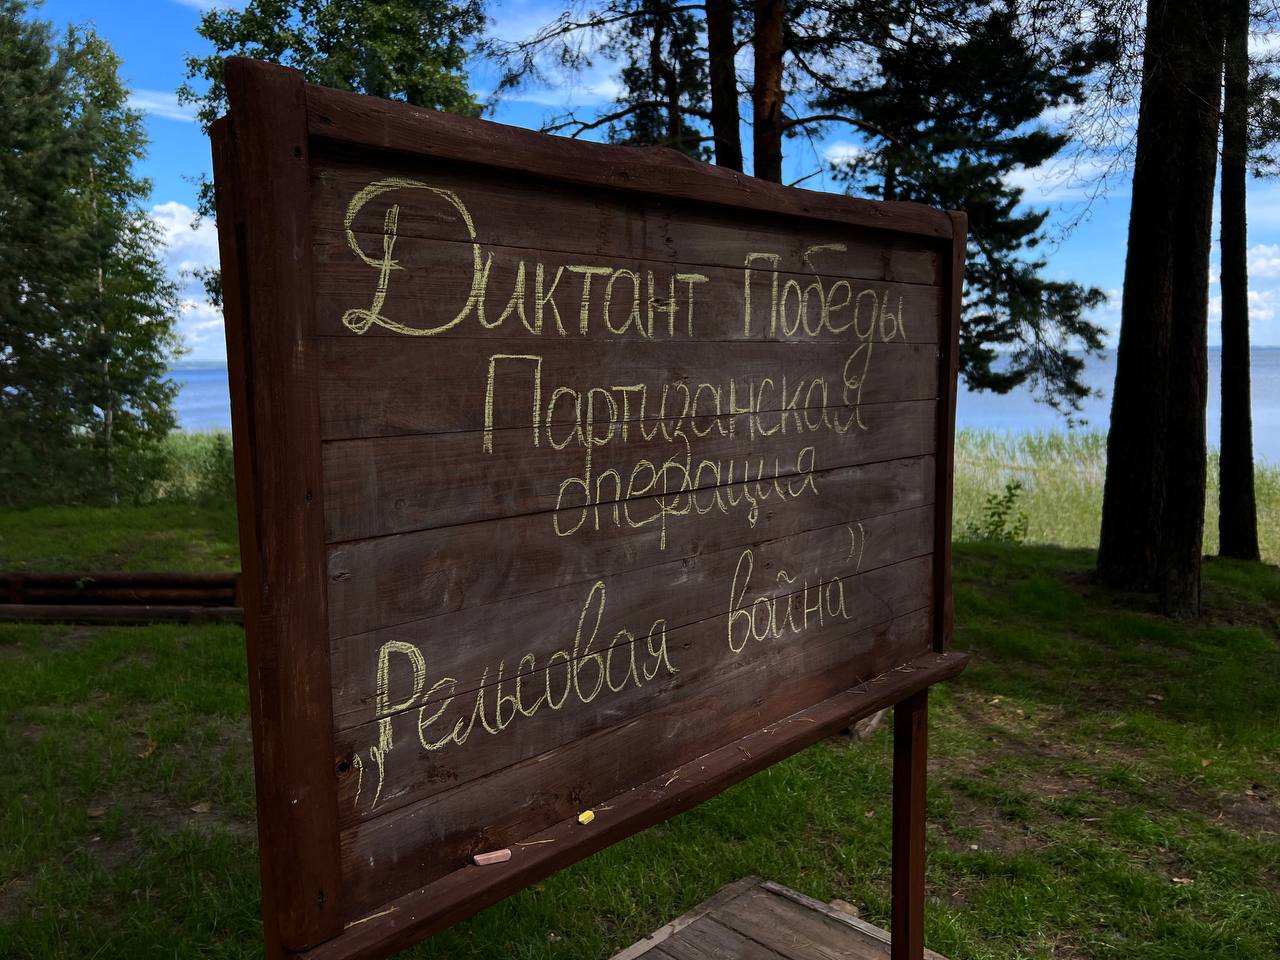 Диктант Победы
Партизанская
операция
„Рельсовая война”